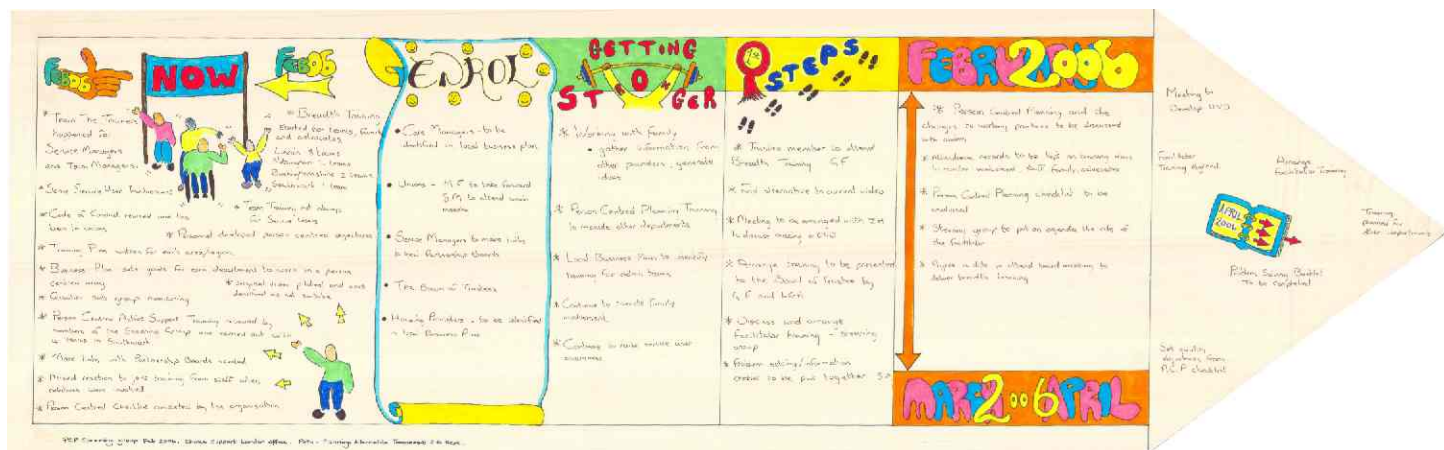 FEB06
NOW
FEB06
* Train The Trainers
happened for
Service Managers
and Team Managers.
* Some Service User Involvement
* Code of Conduct revised and has
been in union
* Training Plan written for each area/region
* Business Plan sets goals for each department to work in a person
centred way
* Quarter sub group monitoring
* Person Centred Active Support Training reviewed by
members of the Steering Group and carried out with
4 teams in Southwark
* More links with Partnership Boards needed
* Mixed reaction to training from staff when
were invited
* Person Centred Checklist completed by the organisation
* Breadth Training
Started for teams, family
and advocates
Lewis 3 teams
2 teams
Buckinghamshire 2 teams
Southwark 1 team
* Team Training not always
for Service Users
* Personnel developed person centred objectives
* Original video piloted and were
and not suitable
ENROL
• Care Managers - to be
identified in local business plan
• Unions - M.F to take forward
S.M to attend union
meeting
• Senior Managers to make links
to local Partnership Boards
• The Board of Trustees
• Housing Providers - to be identified
in local Business Plans
GETTING
STRONGER
* Working with family
• gather information from
other providers, generate
ideas
* Person Centred Planning Training
to include other departments
* Local Business Plan to identify
training for admin teams
* Continue to promote family
involvement
* Continue to raise service user
awareness
1st
STEPS
* Trustee member to attend
Breadth Training G.F
* Find alternative to current video
* Meeting to be arranged with IM
to discuss making a DVD
* Arrange training to be presented
to the Board of Trustees by
G.F and
* Discuss and arrange
facilitator training - steering
group
* Folder making/information
to be put together S.P
FEBRUARY 2006
* Person Centred Planning and the
changes in working practice to be discussed
with unions
* Attendance records to be kept on training days
to monitor involvement, staff, family, advocates
* Person Centred Planning checklist to be
analysed
* Steering group to put on agenda the role of
the facilitator
* Agree a date to attend board meeting to
deliver breadth training
MARCH 2006 APRIL
Meeting to
Develop DVD
Facilitator
Training Agreed
Arrange
Facilitation Training
APRIL
2006
Training
planned for
other departments
Problem Solving Booklet
To be Completed
Set quality
objectives from
P.C.P checklist
PCP Steering group Feb 2006. Choice Support London office. Path - Planning Alternative Tomorrows with Hope.